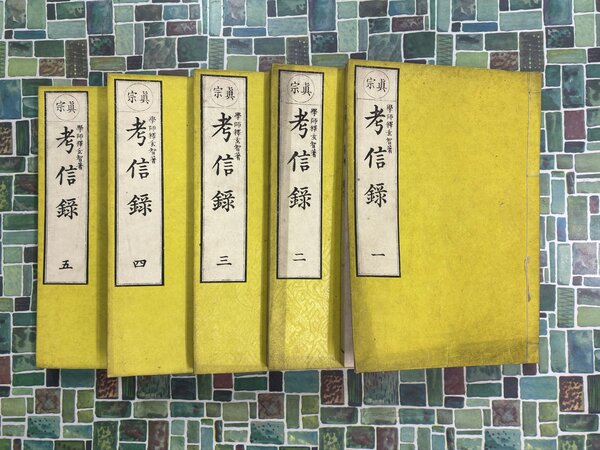 眞宗
學師釋玄智著
考信錄
一
眞宗
學師釋玄智著
考信錄
二
眞宗
學師釋玄智著
考信錄
三
眞宗
學師釋玄智著
考信錄
四
眞宗
學師釋玄智著
考信錄
五